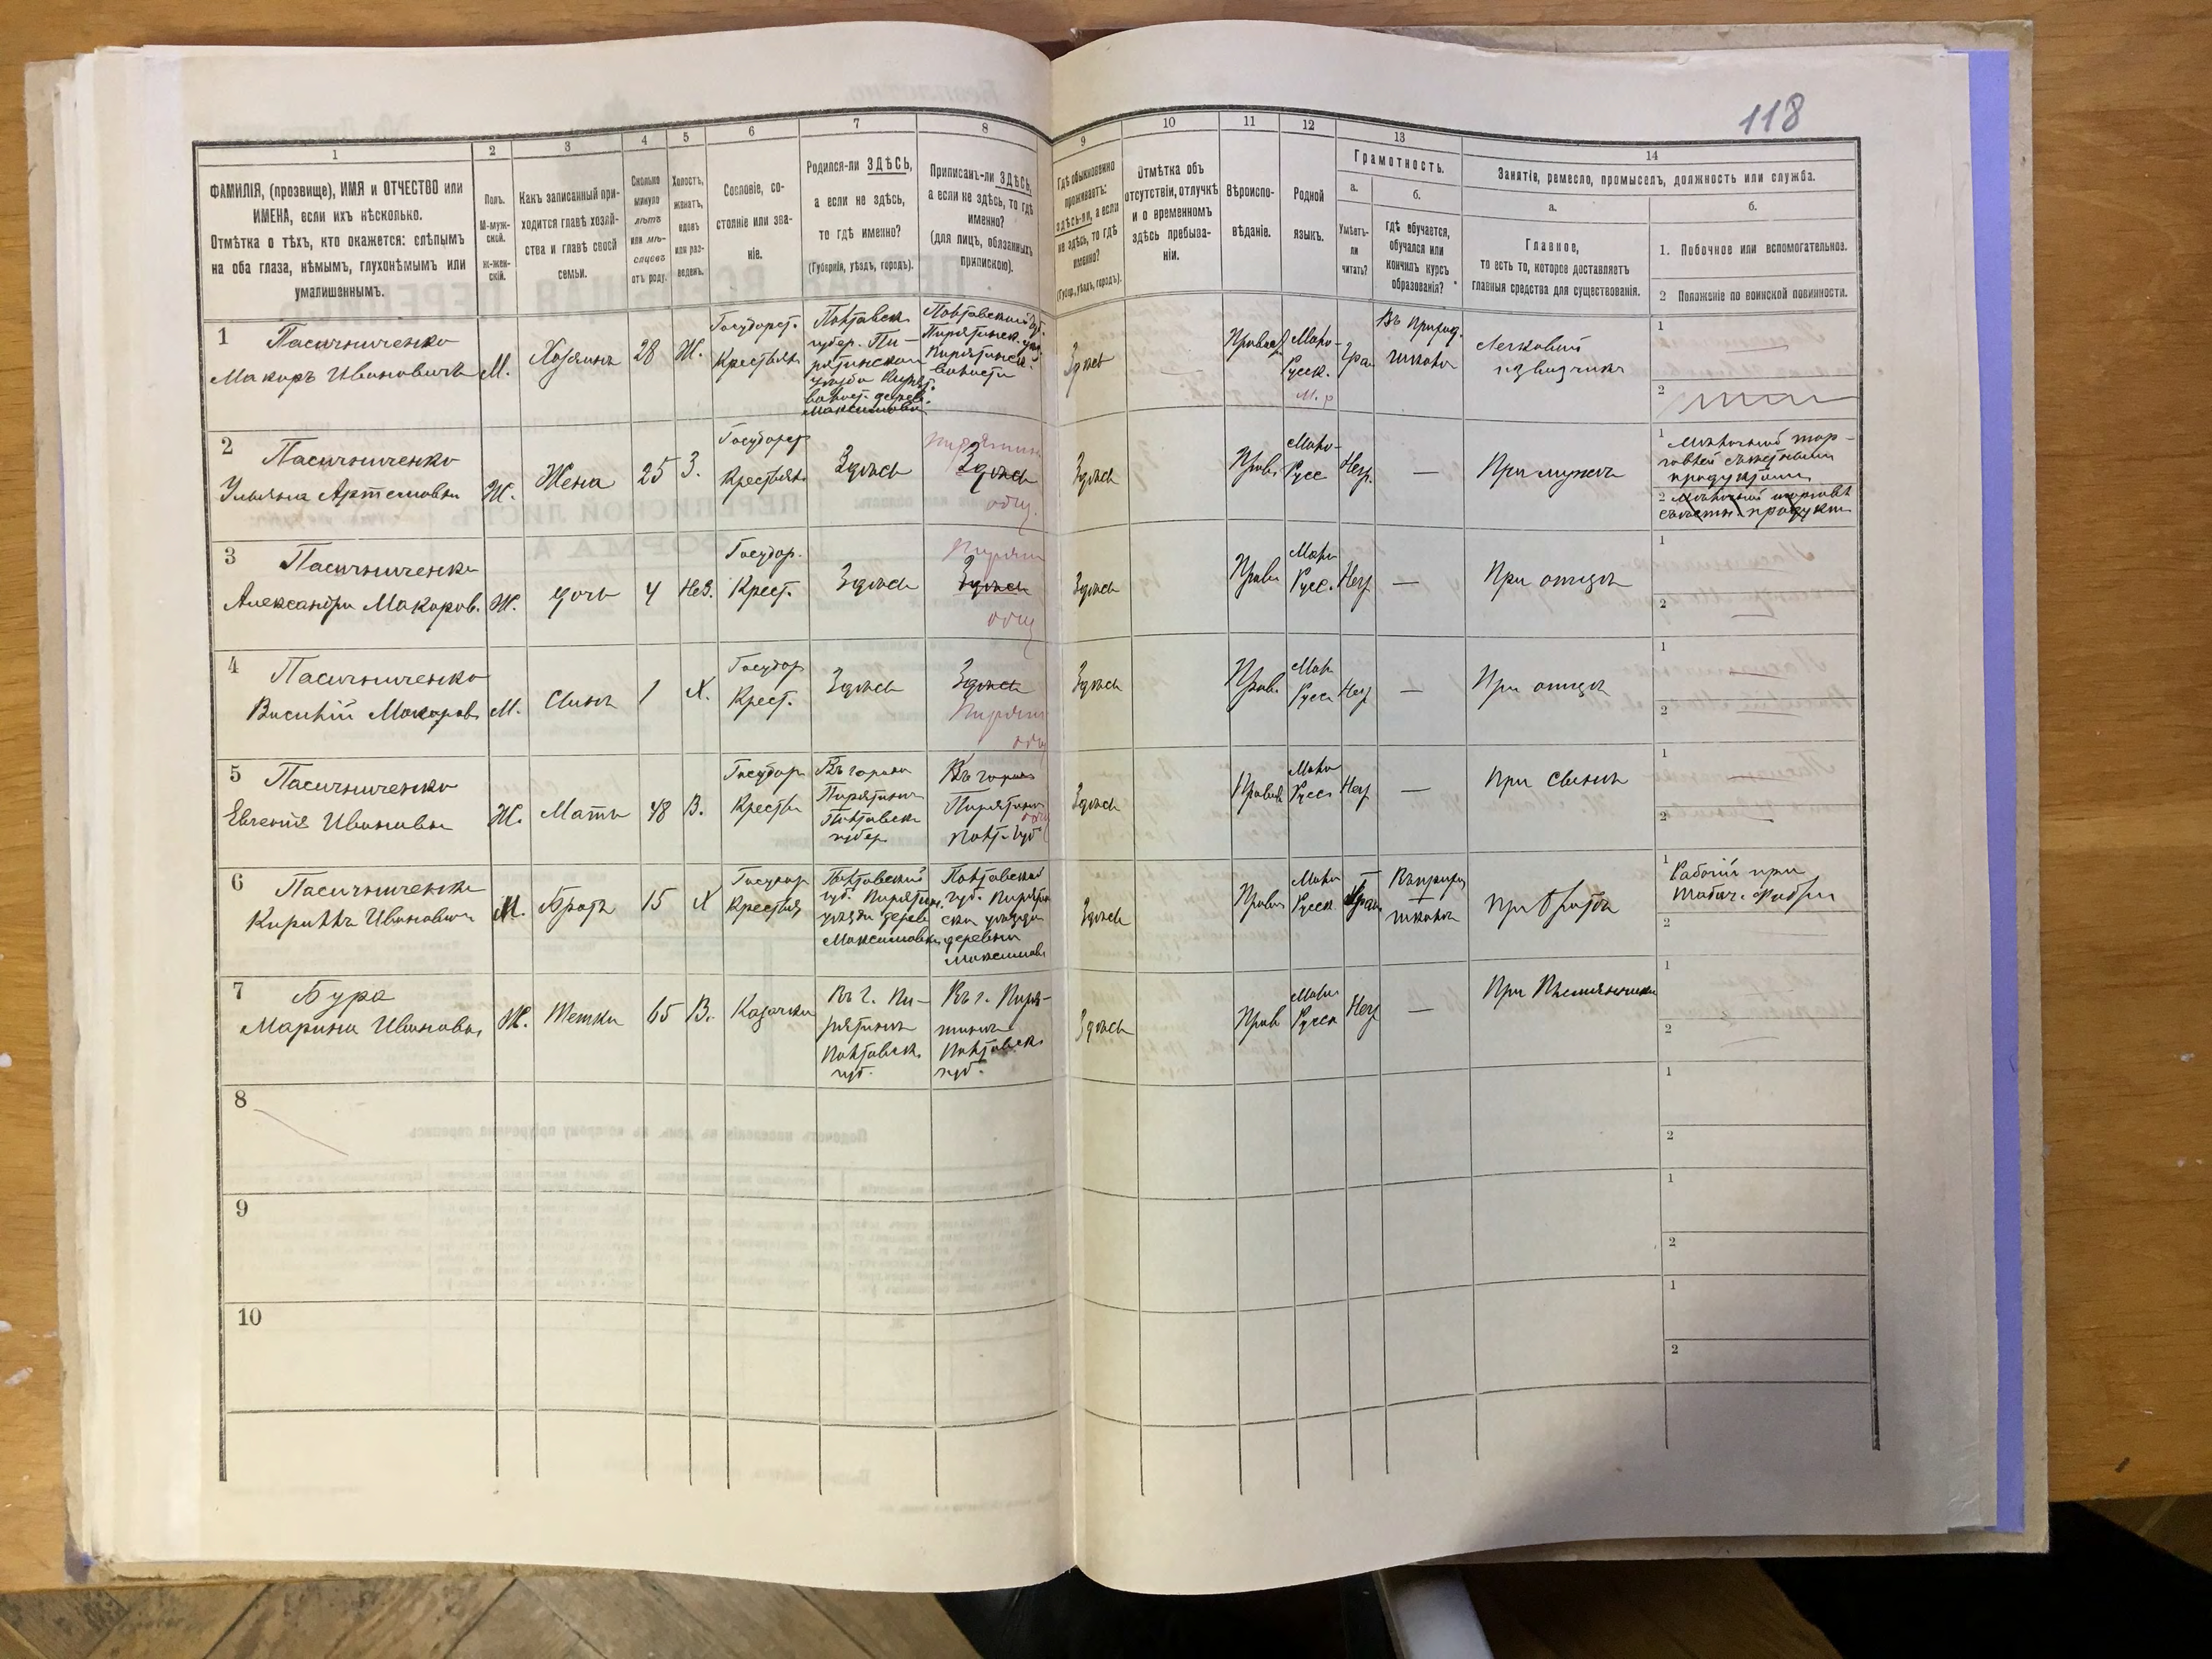 118
1
2
3
4
5
6
7
8
9
10
11
12
13
14
ФАМИЛІЯ, (прозвище), ИМЯ и ОТЧЕСТВО или
ИМЕНА, если ихъ нѣсколько.
Отмѣтка о тѣхъ, кто окажется: слѣпымъ
на оба глаза, нѣмымъ, глухонѣмымъ или
умалишеннымъ.
Полъ.
М-муж-
ской.
ж-жен-
скій.
Какъ записанный при-
ходится главѣ хозяй-
ства и главѣ своей
семьи.
Сколько
минуло
лѣтъ
или мѣ-
сяцевъ
отъ роду.
Холостъ,
женатъ,
вдовъ
или раз-
веденъ.
Сословіе, со-
стояніе или зва-
ніе.
Родился-ли ЗДѢСЬ,
а если не здѣсь,
то гдѣ именно?
(Губернія, уѣздъ, городъ).
Приписанъ-ли ЗДѢСЬ,
а если не здѣсь, то гдѣ
именно?
(для лицъ, обязанныхъ
припискою).
Гдѣ обыкновенно
проживаетъ:
здѣсь-ли, а если
не здѣсь, то гдѣ
именно?
(Губер., уѣздъ, городъ).
Отмѣтка объ
отсутствіи, отлучкѣ
и о временномъ
здѣсь пребыва-
ніи.
Вѣроиспо-
вѣданіе.
Родной
языкъ.
Грамотность.
а.
б.
Умѣетъ-
ли
читать?
гдѣ обучается,
обучался или
кончилъ курсъ
образованія?
Занятіе, ремесло, промыселъ, должность или служба.
а.
б.
Главное,
то есть то, которое доставляетъ
главныя средства для существованія.
1. Побочное или вспомогательное.
2 Положеніе по воинской повинности.
1
Пасичниченко
Макаръ Ивановичъ
М.
Хозяинъ
28
Ж.
Государст.
Крестьян
Полтавск.
губер. Пи-
рятинскаго
уезда
волост. дерев.
Максимовки
Полтавской губ.
Пирятинск. уез.
Пирятинск.
волости
Здѣсь
Правосл
Мало-
Русск.
м. р
Гра.
Въ приход.
школѣ
Легковый
извозчикъ
1
2
2
Пасичниченко
Ульяна Артемовна
Ж.
Жена
25
З.
Государст
Крестьян
Здѣсь
Пирятин
Здѣсь
общ.
Здѣсь
Прав.
Мало-
Русс
Негр.
—
При мужѣ
1 Мѣлочной тор-
говлей съѣстными
продуктами
2 Мѣлочной торговлѣ
съѣстн. продукт
3
Пасичниченко
Александра Макаров.
Ж.
дочь
4
Нез.
Государ.
Крест.
Здѣсь
Пирятин
Здѣсь
общ
Здѣсь
Прав
Мало
Русс.
Негр
—
При отцѣ
1
2
4
Пасичниченко
Василій Макаров
М.
Сынъ
1
Х.
Государ
Крест.
Здѣсь
Здѣсь
Пирятин
общ
Здѣсь
Прав
Мало
Русс
Негр
—
При отцѣ
1
2
5
Пасичниченко
Евгенія Ивановна
Ж.
Мать
48
В.
Государ
Крестьян
Въ городѣ
Пирятинѣ
Полтавск
губер
Въ городѣ
Пирятинѣ
общ
Полт. губ
Здѣсь
Правосл
Мало
Русс
Негр
—
При Сынѣ
1
2
6
Пасичниченко
Кириллъ Ивановичъ
М.
Братъ
15
Х
Государ
Крестьян
Полтавской
губ. Пирятин.
уезда дерев
Максимовки
Полтавской
губ. Пиряти
ска уезда
деревни
Максимов
Здѣсь
Правос
Мало
Русск
Грам
Въ приход
школѣ
При братѣ
1 Рабочій при
табач. фабри
2
7
Бура
Марина Ивановна
Ж.
Тетка
65
В.
Казачка
Въ г. Пи-
рятинѣ
Полтавск.
губ.
Въ г. Пиря-
тинѣ
Полтавск
губ.
Здѣсь
Прав
Мало
Русск
Негр
—
При Племянникѣ
1
2
8
1
2
9
1
2
10
1
2